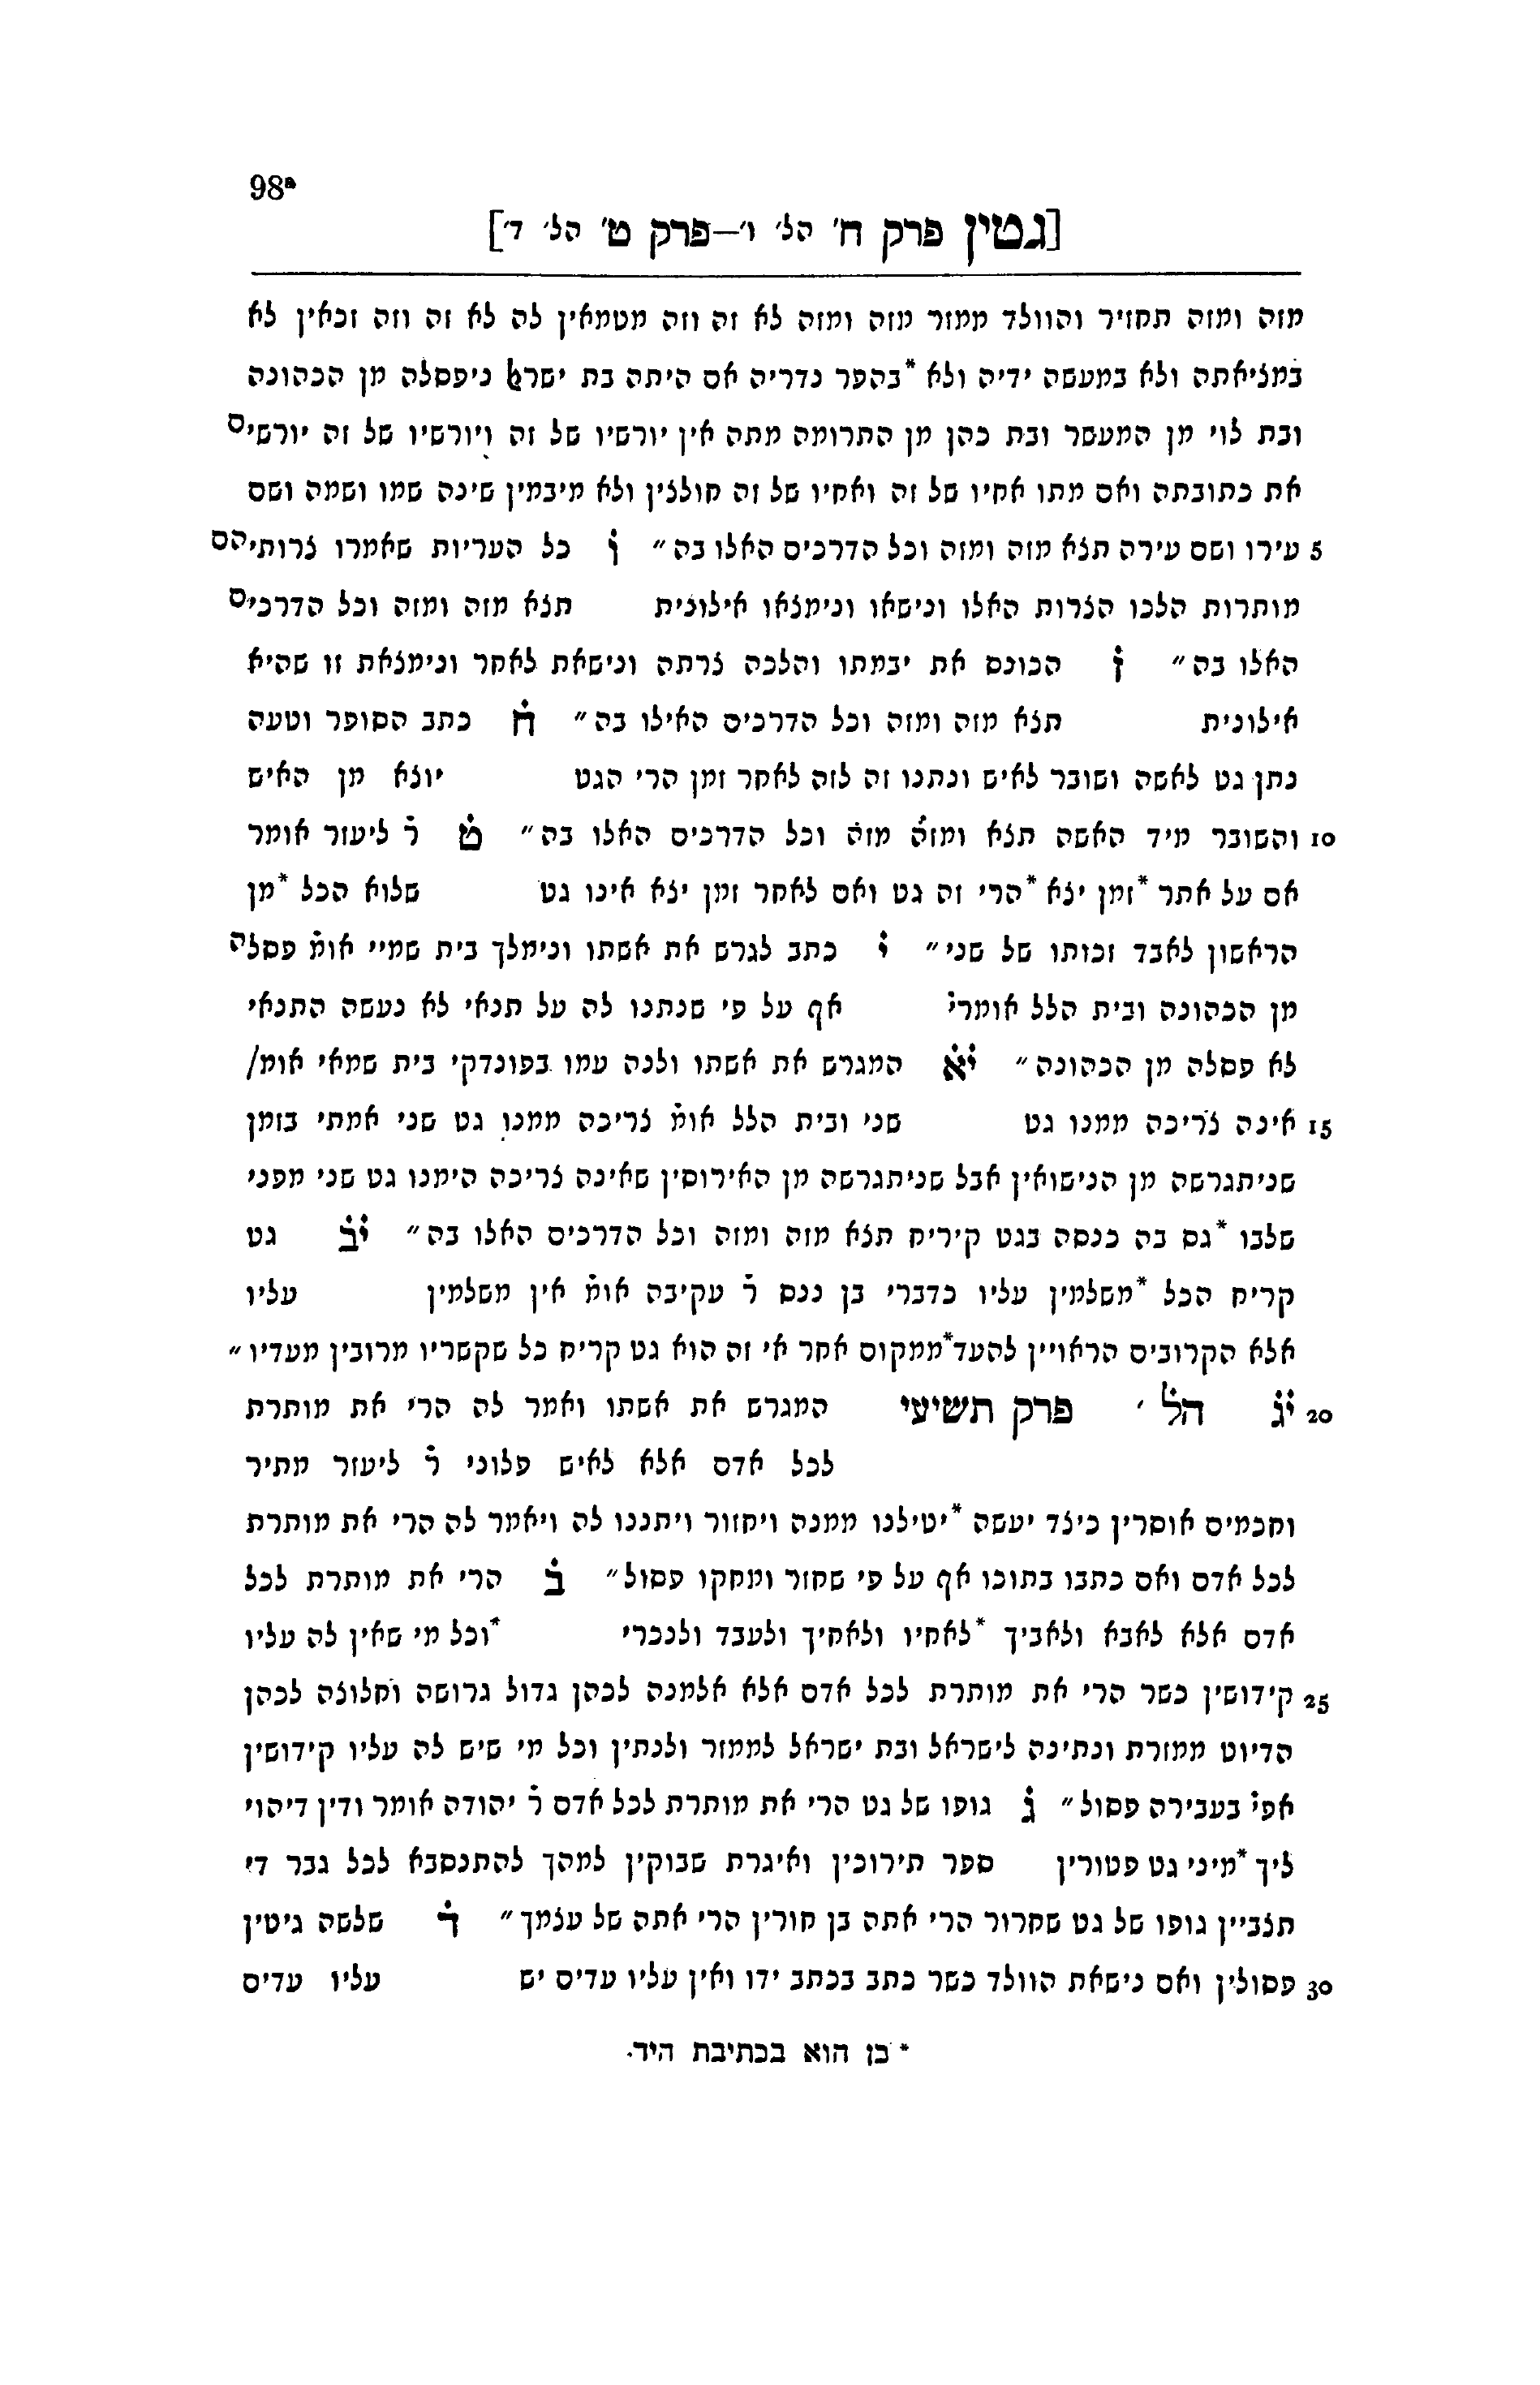 98ª
[גטין פרק ח' הל' ו'—פרק ט' הל' ד']
מזה ומזה תחזיר והוולד ממזר מזה ומזה לא זה וזה מטמאין לה לא זה וזה זכאין לא
במציאתה ולא במעשה ידיה ולא *בהפר נדריה אם היתה בת ישרﭏ ניפסלה מן הכהונה
ובת לוי מן המעשר ובת כהן מן התרומה מתה אין יורשיו של זה ויורשיו של זה יורשים
את כתובתה ואם מתו אחיו של זה ואחיו של זה חולצין ולא מיבמין שינה שמו ושמה ושם
5 עירו ושם עירה תצא מזה ומזה וכל הדרכים האלו בה״ ו כל העריות שאמרו צרותיהם
מותרות הלכו הצרות האלו ונישאו ונימצאו אילונית תצא מזה ומזה וכל הדרכים
האלו בה״ ז הכונס את יבמתו והלכה צרתה ונישאת לאחר ונימצאת זו שהיא
אילונית תצא מזה ומזה וכל הדרכים האילו בה״ ח כתב הסופר וטעה
נתן גט לאשה ושובר לאיש ונתנו זה לזה לאחר זמן הרי הגט יוצא מן האיש
10 והשובר מיד האשה תצא ומזה מזה וכל הדרכים האלו בה״ ט ר ליעזר אומר
אם על אתר *זמן יצא *הרי זה גט ואם לאחר זמן יצא אינו גט שלוא הכל *מן
הראשון לאבד זכותו של שני״ י כתב לגרש את אשתו ונימלך בית שמיי אומ פסלה
מן הכהונה ובית הלל אומרי אף על פי שנתנו לה על תנאי לא נעשה התנאי
לא פסלה מן הכהונה״ יא המגרש את אשתו ולנה עמו בפונדקי בית שמאי אומ/
15 אינה צריכה ממנו גט שני ובית הלל אומ צריכה ממנו גט שני אמתי בזמן
שניתגרשה מן הנישואין אבל שניתגרשה מן האירוסין שאינה צריכה הימנו גט שני מפני
שלבו *גס בה כנסה בגט קיריח תצא מזה ומזה וכל הדרכים האלו בה״ יב גט
קריח הכל *משלמין עליו כדברי בן ננס ר עקיבה אומ אין משלמין עליו
אלא הקרובים הראויין להעד*ממקום אחר אי זה הוא גט קריח כל שקשריו מרובין מעדיו״
20 יג הל׳ פרק תשיעי המגרש את אשתו ואמר לה הרי את מותרת
לכל אדם אלא לאיש פלוני ר ליעזר מתיר
וחכמים אוסרין כיצד יעשה *יטילנו ממנה ויחזור ויתננו לה ויאמר לה הרי את מותרת
לכל אדם ואם כתבו בתוכו אף על פי שחזר ומחקו פסול״ ב הרי את מותרת לכל
אדם אלא לאבא ולאביך *לאחיו ולאחיך ולעבד ולנכרי *וכל מי שאין לה עליו
25 קידושין כשר הרי את מותרת לכל אדם אלא אלמנה לכהן גדול גרושה וחלוצה לכהן
הדיוט ממזרת ונתינה לישראל ובת ישראל לממזר ולנתין וכל מי שיש לה עליו קידושין
אפי בעבירה פסול״ ג גופו של גט הרי את מותרת לכל אדם ר יהודה אומר ודין דיהוי
ליך *מיני גט פטורין ספר תירוכין ואיגרת שבוקין למהך להתנסבא לכל גבר די
תצביין גופו של גט שחרור הרי אתה בן חורין הרי אתה של עצמך״ ד שלשה גיטין
30 פסולין ואם נישאת הוולד כשר כתב בכתב ידו ואין עליו עדים יש עליו עדים
* כן הוא בכתיבת היד.